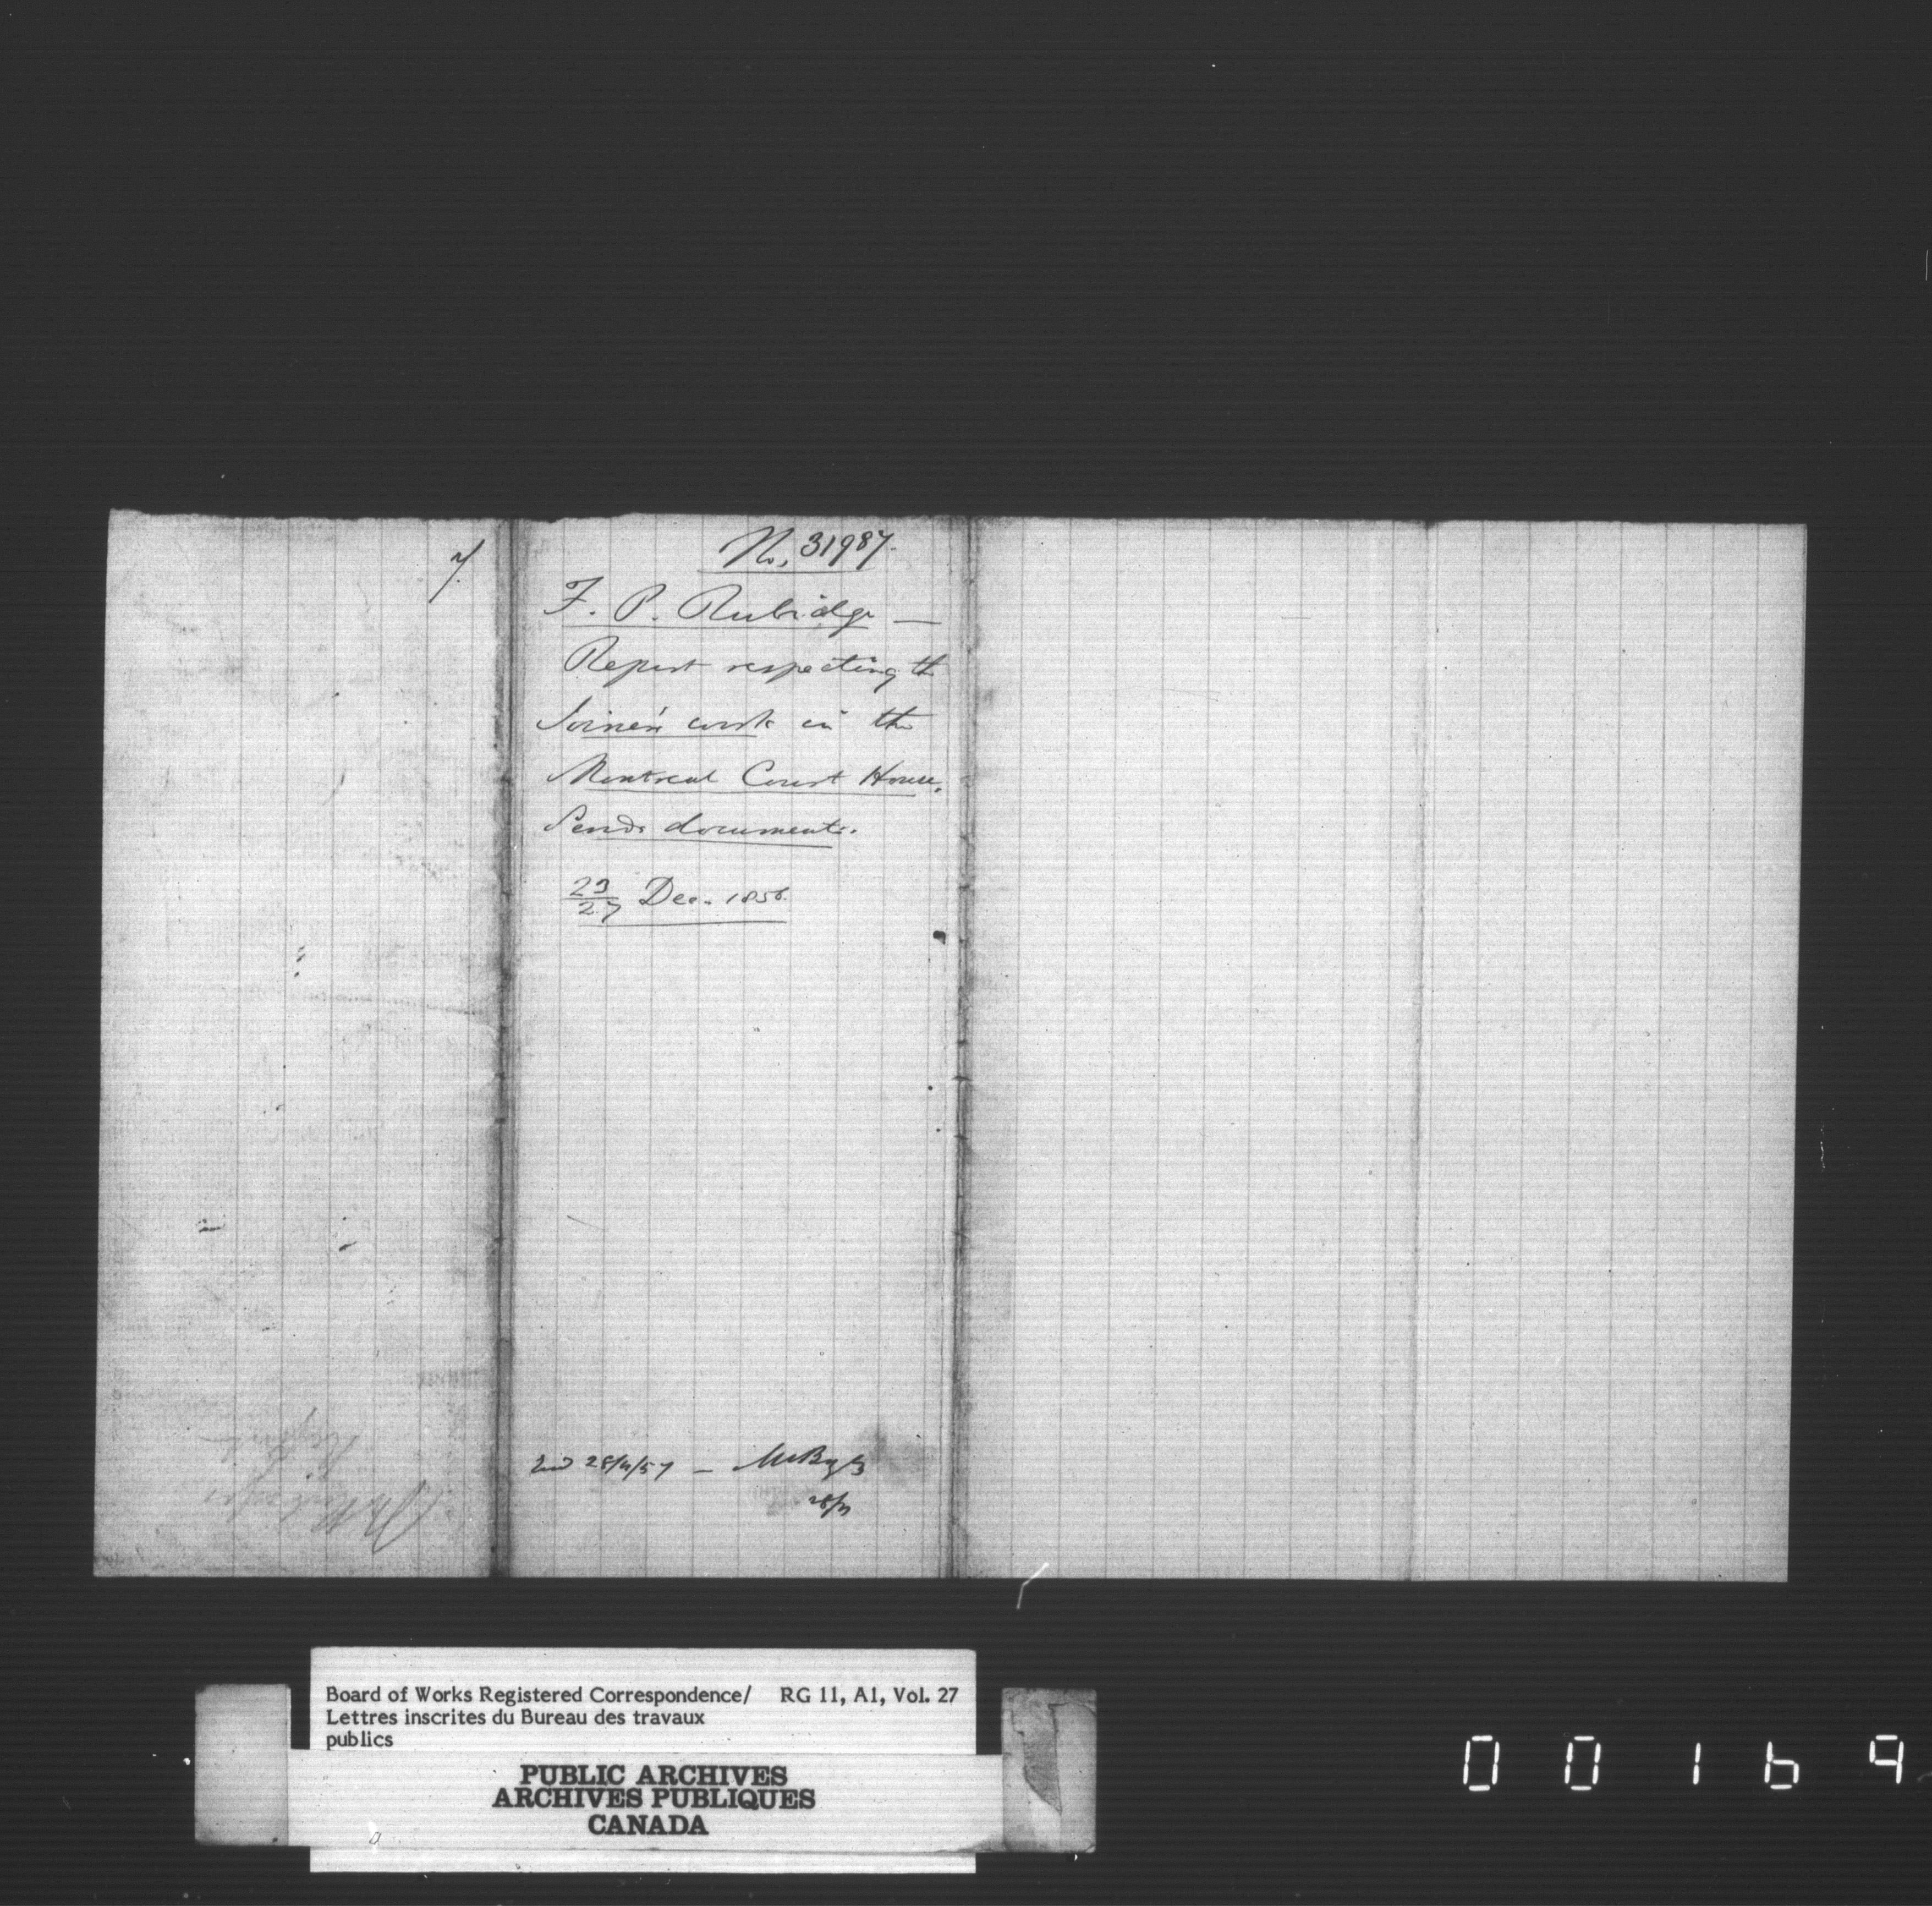 7.
No. 31987.
F. P. Rubidge —
Report respecting the
Joiner's work in the
Montreal Court House,
Sends documents.
23/27 Dec. 1856.
28/4/57 —
Board of Works Registered Correspondence/ RG 11, A1, Vol. 27
Lettres inscrites du Bureau des travaux
publics
PUBLIC ARCHIVES
ARCHIVES PUBLIQUES
CANADA
00169